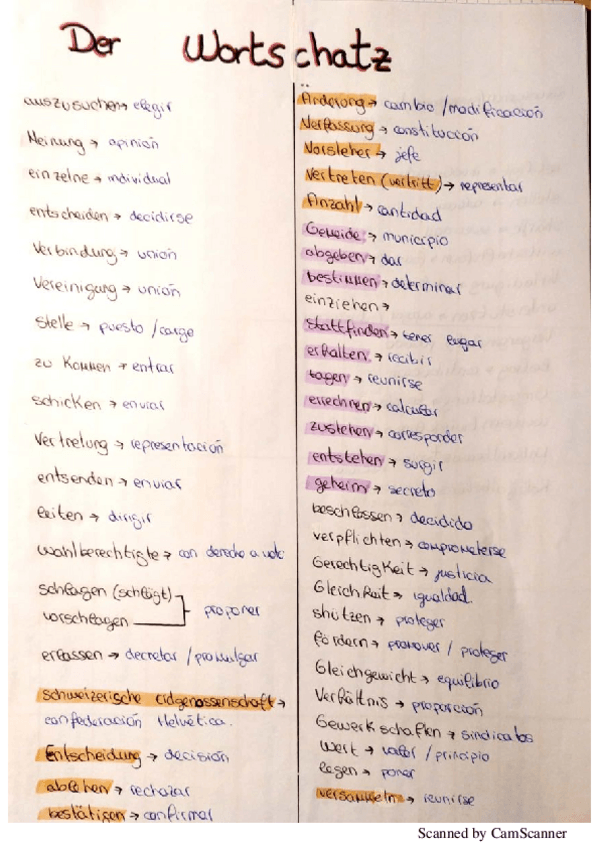 Der Wortschatz
auszusuchen → elegir
Meinung → opinión
einzelne → individual
entscheiden → decidirse
Verbindung → unión
Vereinigang → unión
Stelle → puesto / cargo
zu Kommen → entrar
schicken → enviar
Vertretung → representación
entsenden → enviar
leiten → dirigir
Wahlberechtigte → con derecho a voto
schlagen (schlägt)
vorschlagen
proponer
erlassen → decretar / promulgar
schweizerische eidgenossenschaft →
confederación Helvética.
Entscheidung → decisión
ablehen → rechazar
bestätigen → confirmar
Änderung → cambio / modificación
Verfassung → constitución
Vorsteher → jefe
Vertreten (vertritt) → representar
Anzahl → cantidad
Gemeide → municipio
abgeben → dar
bestimmen → determinar
einziehen →
stattfinden → tener lugar
erhalten → recibir
tagen → reunirse
errechnen → calcular
zustehen → corresponder
entstehen → surgir
geheim → secreto
beschlossen → decidido
verpflichten → comprometerse
Gerechtigkeit → justicia
Gleichheit → igualdad.
shützen → proteger
fördern → promover / proteger
Gleichgewicht → equilibrio
Verhältnis → proporción
Gewerkschaften → sindicatos
Wert → valor / principio
legen → poner
versammeln → reunirse
Scanned by CamScanner